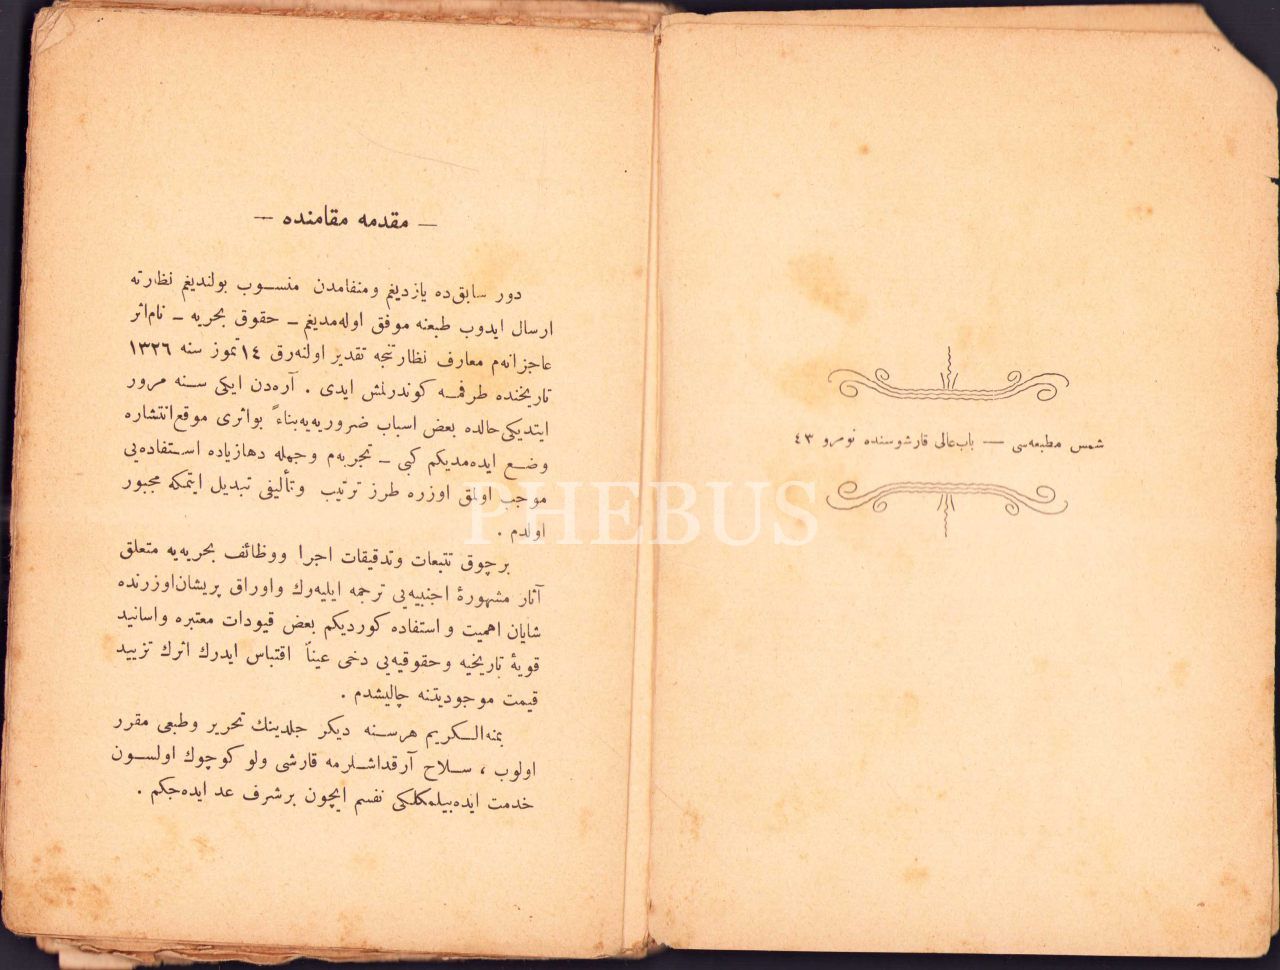 شمس مطبعه‌سی — باب‌عالی قارشوسنده نومرو ٤٣
— مقدمه مقامنده —
دور سابق‌ده یازدیغم ومنفامدن منسوب بولندیغم نظارته
ارسال ایدوب طبعنه موفق اوله‌مدیغم – حقوق بحریه – نام‌اثر
عاجزانه‌م معارف نظارتنجه تقدیر اولنه‌رق ١٤ تموز سنه ١٣٢٦
تاریخنده طرفمه کوندرلمش ایدی . آره‌دن ایکی سنه مرور
ایتدیکی حالده بعض اسباب ضروریه‌یه‌بناءً بواثری موقع‌انتشاره
وضع ایده‌مدیکم کبی – تجربه‌م وجمله دهازیاده استفاده‌یی
موجب اولمق اوزره طرز ترتیب وتألیفی تبدیل ایتمکه مجبور
اولدم .
برچوق تتبعات وتدقیقات اجرا ووظائف بحریه‌یه متعلق
آثار مشهورهٔ اجنبیه‌یی ترجمه ایلیه‌رك واوراق پریشان‌اوزرنده
شایان اهمیت واستفاده کوردیکم بعض قیودات معتبره واسانید
قویهٔ تاریخیه وحقوقیه‌یی دخی عیناً اقتباس ایدرك اثرك تزیید
قیمت موجودیتنه چالیشدم .
بمنه‌الکریم هرسنه دیکر جلدینك تحریر وطبعی مقرر
اولوب ، سلاح آرقداشلرمه قارشی ولو کوچوك اولسون
خدمت ایده‌بیلمکلکی نفسم ایچون برشرف عد ایده‌جکم .
PHEBUS